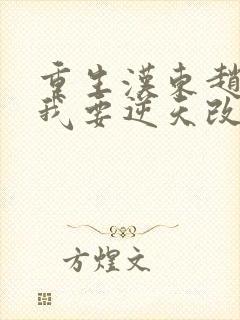 重生漢東趙
我要逆天改
方煌文